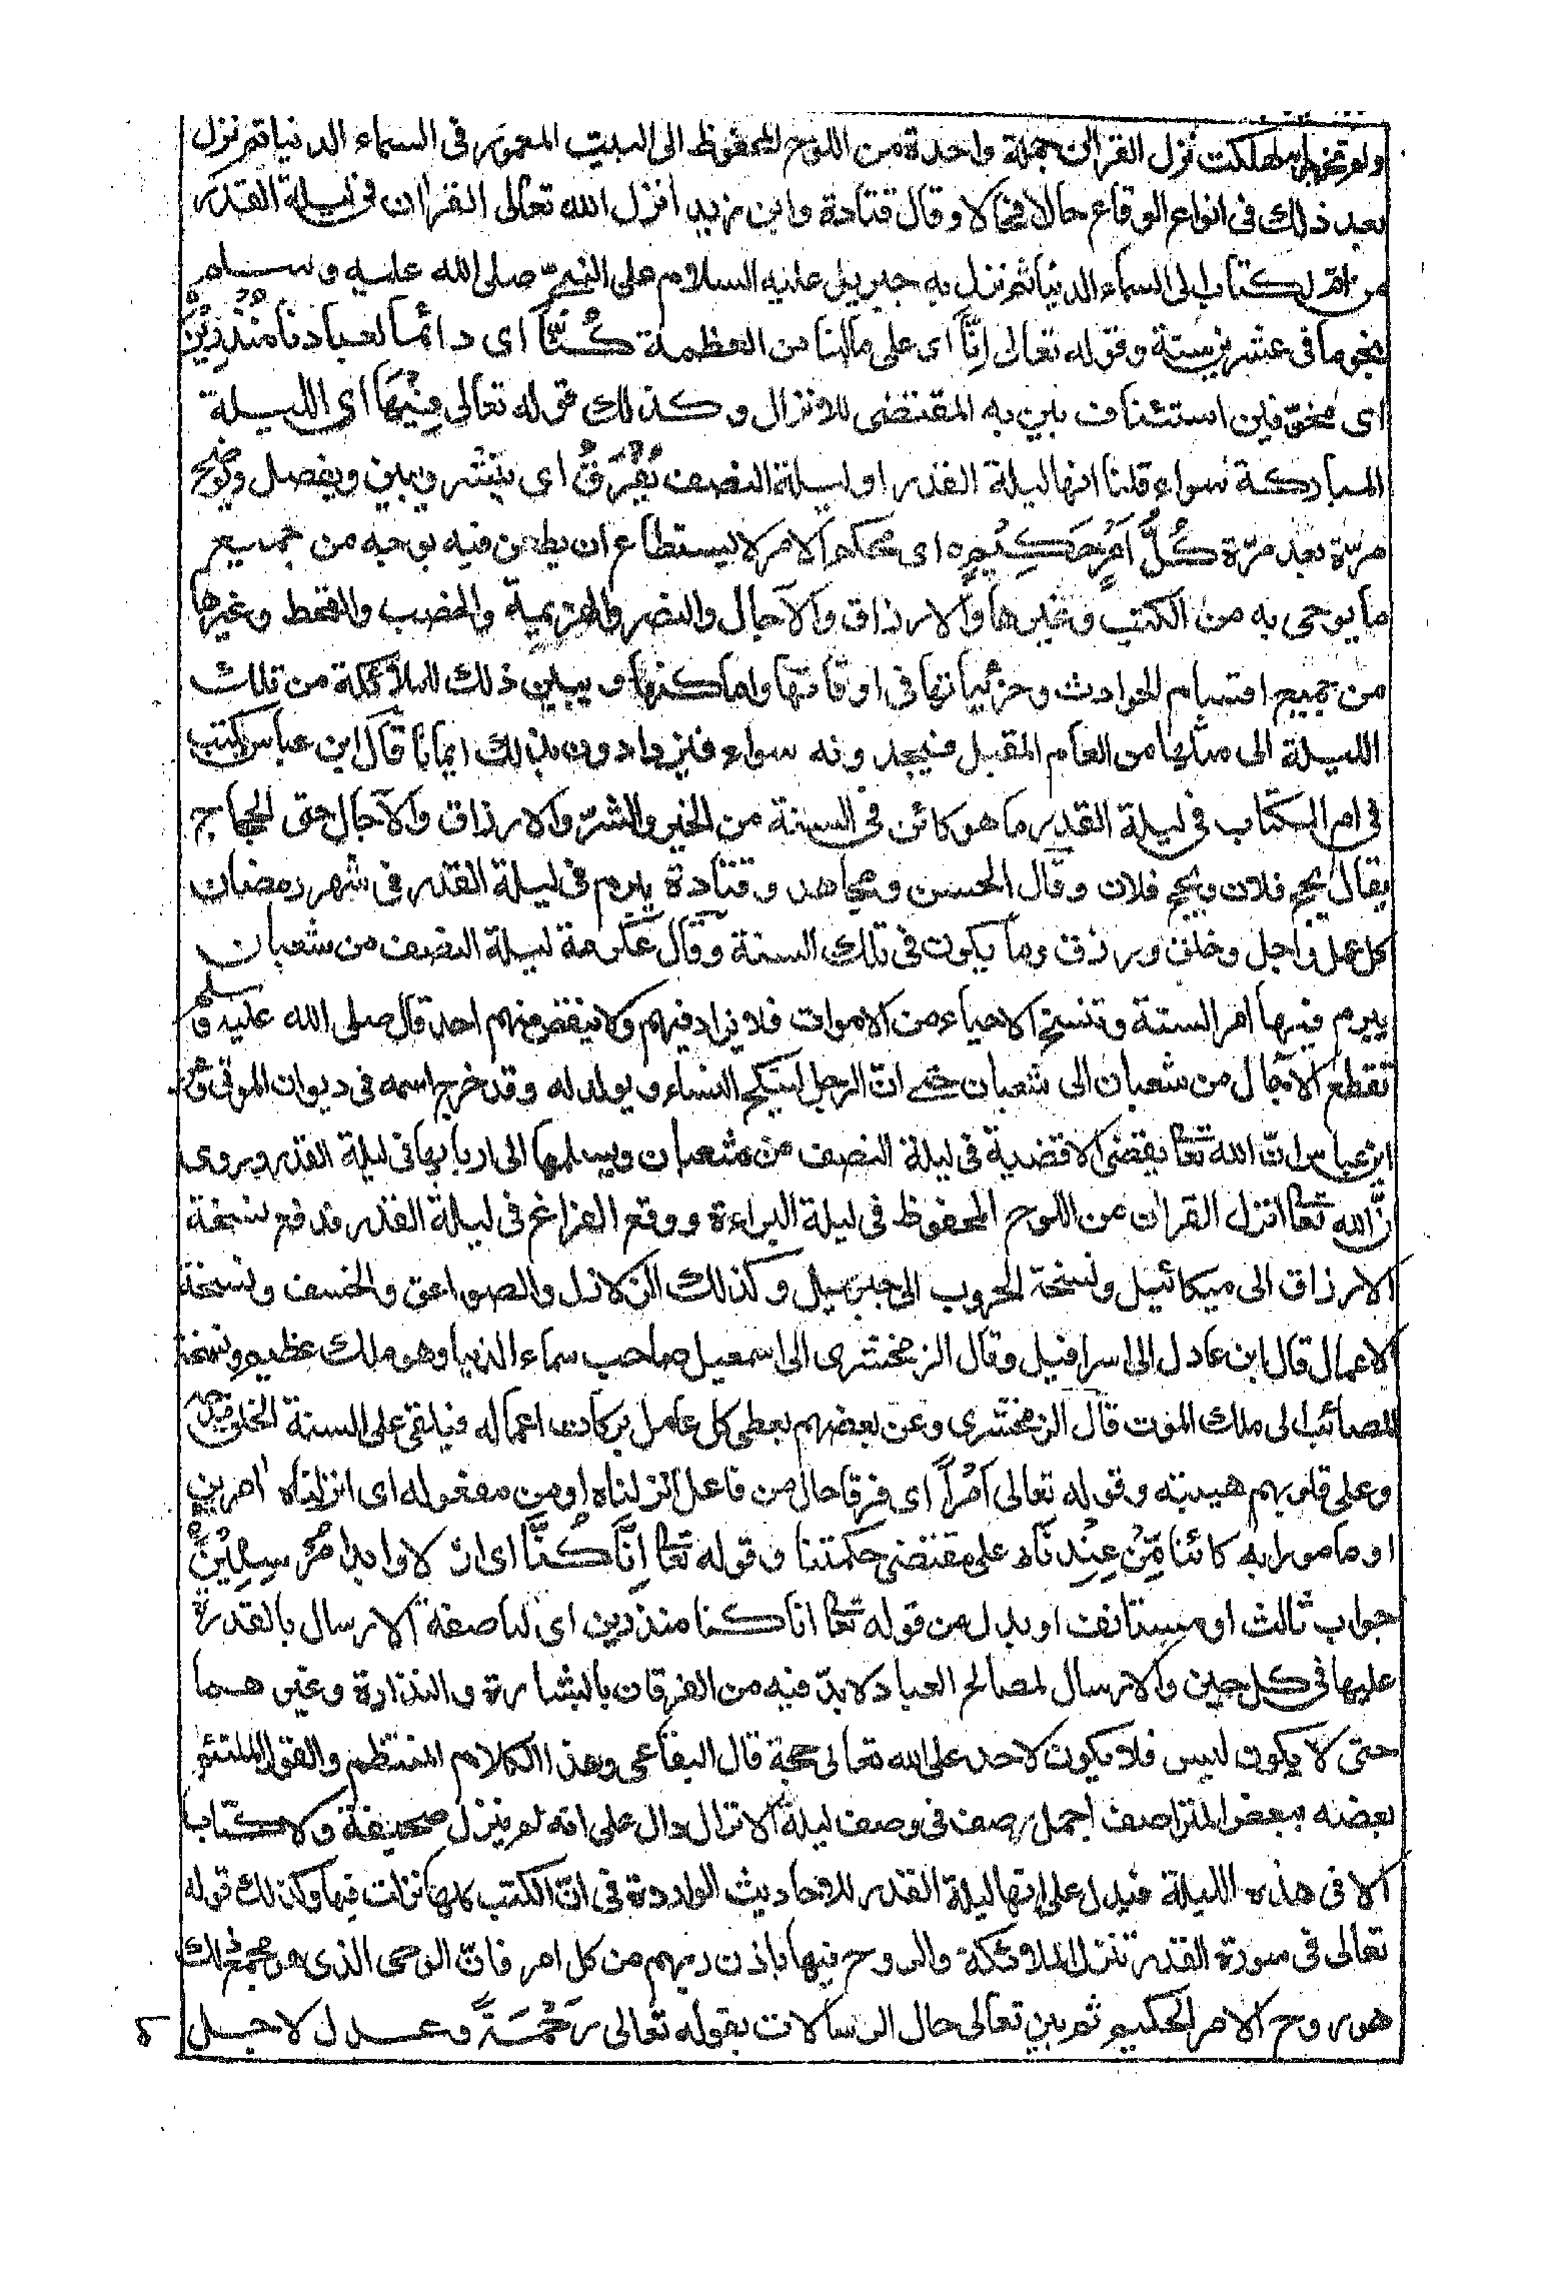 ولم تخبر به لهلكت نزل القرآن جملة واحدة من اللوح المحفوظ الى البيت المعمور فى السماء الدنيا ثم نزل
بعد ذلك فى انواع الوقائع حالا فحالا وقال قتادة وابن زيد انزل الله تعالى القرآن فى ليلة القدر
من ام الكتاب الى السماء الدنيا ثم نزل به جبريل عليه السلام على النبىّ صلى الله عليه وسلم
نجوما فى عشرين سنة وقوله تعالى اِنَّا اى على مالنا من العظمة كُنَّا اى دائما لعبادنا مُنْذِرِيْنَ
اى مخوّفين استئناف بين به المقتضى للانزال وكذلك قوله تعالى فِيْهَا اى الليلة
المباركة سواء قلنا انها ليلة القدر او ليلة النصف يُفْرَقُ اى ينشر ويبين ويفصل ويوضح
مرّة بعد مرّة كُلُّ اَمْرٍ حَكِيْمٍ ه اى محكم الامر لا يستطاع ان يطعن فيه بوجه من جميع
ما يوحى به من الكتب وغيرها والارزاق والآجال والنصر والهزيمة والخصب والقحط وغيرها
من جميع اقسام الحوادث وجزئياتها فى اوقاتها واماكنها ويبين ذلك للملائكة من تلك
الليلة الى مثلها من العام المقبل فيجدونه سواء فيزدادون بذلك ايمانا قال ابن عباس يكتب
فى ام الكتاب فى ليلة القدر ما هو كائن فى السنة من الخير والشرّ والارزاق والآجال حتى الحجاج
يقال يحج فلان ويحج فلان وقال الحسن ومجاهد وقتادة يبرم فى ليلة القدر فى شهر رمضان
كل عمل واجل وخلق ورزق وما يكون فى تلك السنة وقال عكرمة ليلة النصف من شعبان
يبرم فيها امر السنة وتنسخ الاحياء من الاموات فلا يزاد فيهم ولا ينقص منهم احد قال صلى الله عليه وسلم
تقطع الآجال من شعبان الى شعبان حتى انّ الرجل لينكح النساء ويولد له وقد خرج اسمه فى ديوان الموتى وعن
ابن عباس انّ الله تعا يقضى الاقضية فى ليلة النصف من شعبان ويسلمها الى اربابها فى ليلة القدر وروى
انّ الله تعا انزل القرآن من اللوح المحفوظ فى ليلة البراءة ووقع الفراغ فى ليلة القدر فدفع نسخة
الارزاق الى ميكائيل ونسخة الحروب الى جبرئيل وكذلك الزلازل والصواعق والخسف ونسخة
الاعمال قال ابن عادل الى اسرافيل وقال الزمخشرى الى اسمعيل صاحب سماء الدنيا وهو ملك عظيم ونسخة
المصائب الى ملك الموت قال الزمخشرى وعن بعضهم يعطى كل عامل بركات اعماله فيلقى على السنة الخلق مدحه
وعلى قلوبهم هيبته وقوله تعالى اَمْرًا اى فرقا حال من فاعل انزلناه او من مفعوله اى انزلناه آمرين
او مامورا به كائنا مِّنْ عِنْدِنَا ه على مقتضى حكمتنا وقوله تعا اِنَّا كُنَّا اى ازلا وابدا مُرْسِلِيْنَ
جواب ثالث او مستانف او بدل من قوله تعا انا كنا منذرين اى لنا صفة الارسال بالقدرة
عليها فى كل حين والارسال لمصالح العباد لا بدّ فيه من الفرقان بالبشارة والنذارة وغيرهما
حتى لا يكون لبس فلا يكون لاحد على الله تعالى حجة قال البقاعى وهذا الكلام المنتظم والقول الملتئم
بعضه ببعض المتراصف اجمل رصف فى وصف ليلة الانزال دال على انه لم ينزل صحيفة ولا كتاب
الا فى هذه الليلة فيدل على انها ليلة القدر للاحاديث الواردة فى انّ الكتب كلها نزلت فيها وكذلك قوله
تعالى فى سورة القدر تنزل الملائكة والروح فيها باذن ربهم من كل امر فانّ الوحى الذى هو مجمع ذلك
هو روح الامر الحكيم ثم بين تعالى حال الرسالات بقوله تعالى رَحْمَةً وعدل لاجل